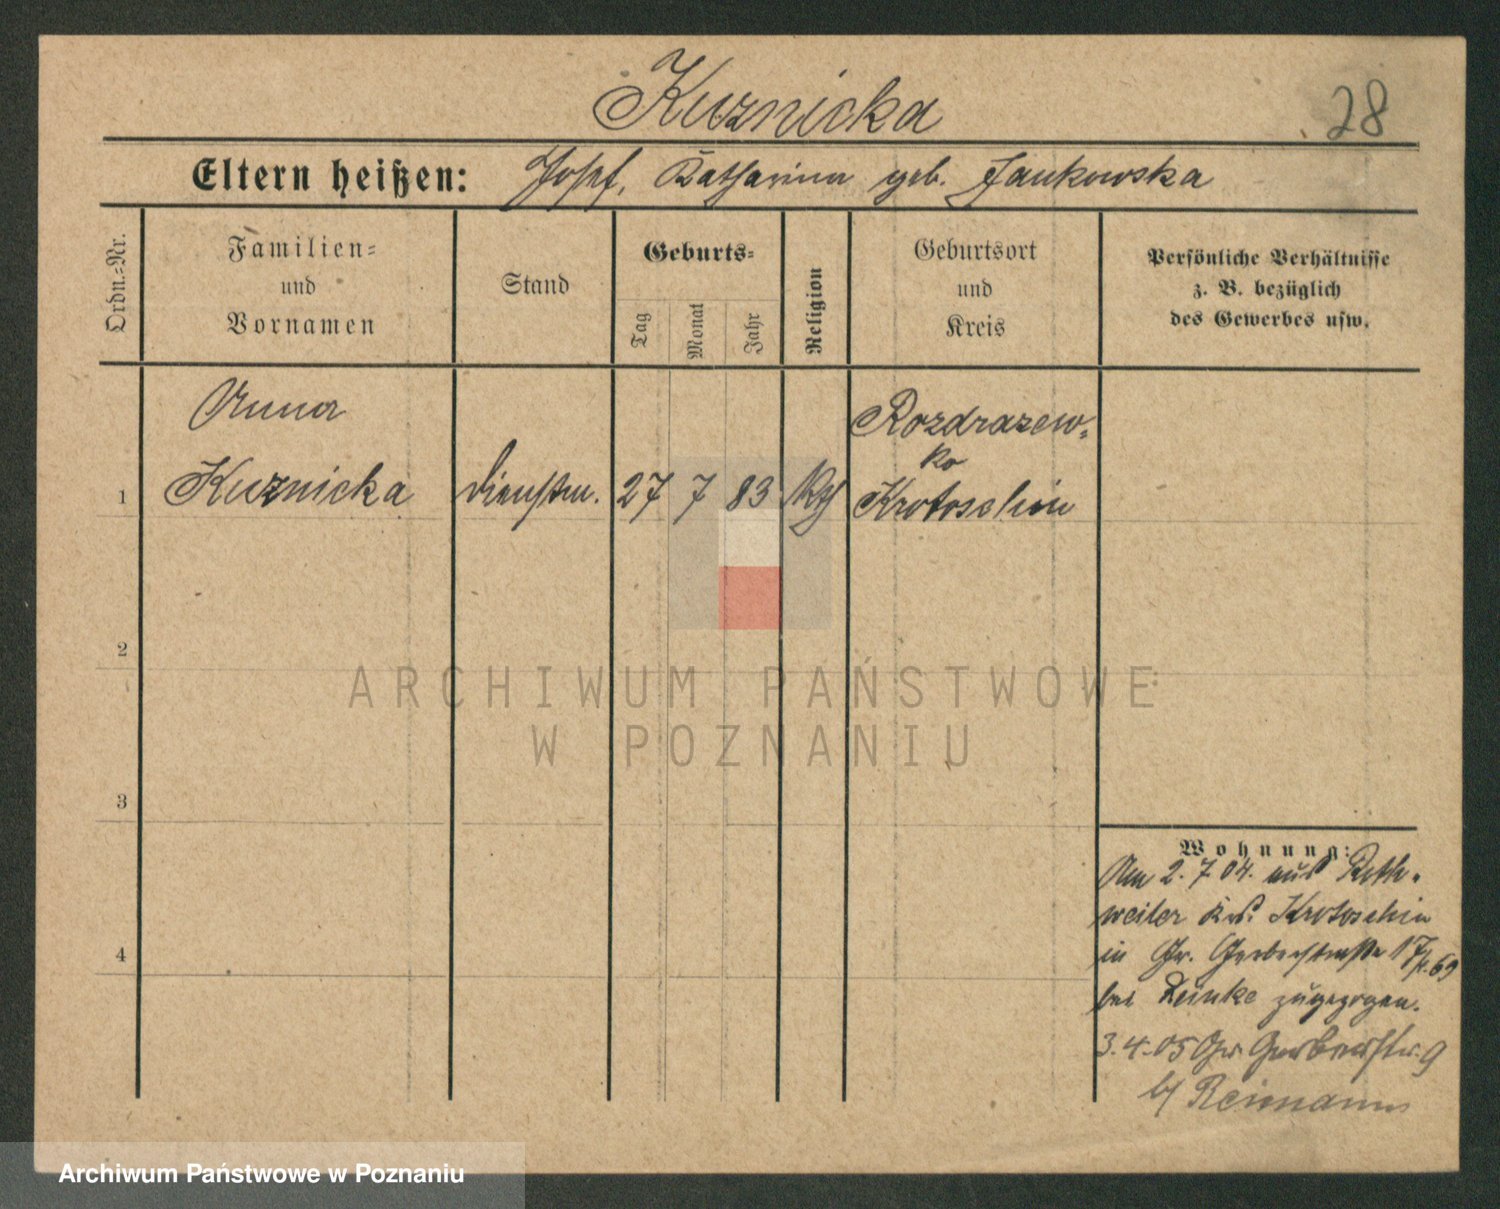 Kuznicka
28
Eltern heißen: Josef, Katharina geb. Jankowska
Ordn.=Nr.
Familien=
und
Vornamen
Stand
Geburts=
Tag
Monat
Jahr
Religion
Geburtsort
und
Kreis
Persönliche Verhältnisse
z. B. bezüglich
des Gewerbes usw.
Anna
1 Kuznicka Dienstm. 27 7 83 Kth
Rozdrazew=
ko
Krotoschin
2
3
4
ARCHIWUM PAŃSTWOWE
W POZNANIU
Wohnung:
Am 2. 7 04. aus Roth-
weiler Krs. Krotoschin
in Gr. Gerberstraße 17
bei Reinke zugezogen.
3.4.05 Gr. Gerberstr. 9
b/ Reimann
Archiwum Państwowe w Poznaniu